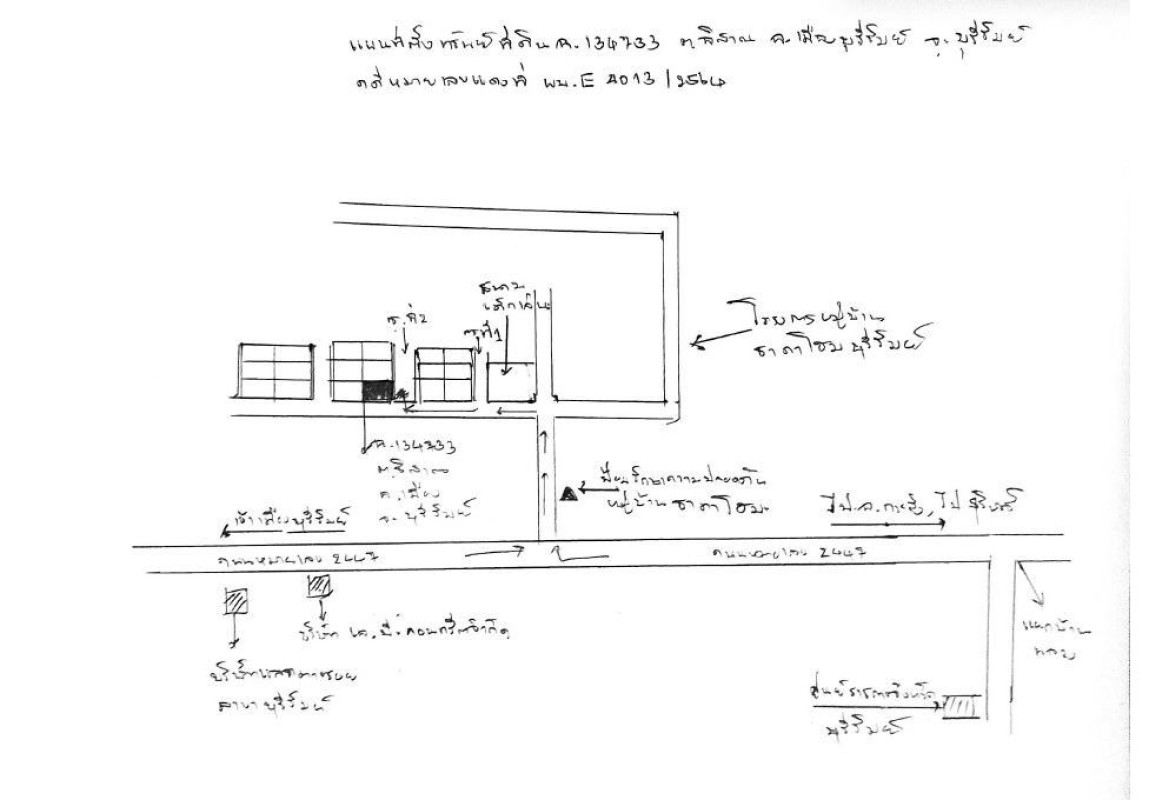 แผนที่ตั้งทรัพย์ที่ดิน ฉ.134733 ต.อิสาณ อ.เมืองบุรีรัมย์ จ.บุรีรัมย์
คดีหมายเลขแดงที่ ผบ.E 4013/2564
สนาม
เด็กเล่น
ซ.ที่2
ซ.ที่1
โครงการหมู่บ้าน
ธาดาโฮม บุรีรัมย์
ฉ.134733
ต.อิสาณ
อ.เมือง
จ.บุรีรัมย์
ป้อมรักษาความปลอดภัย
หมู่บ้าน ธาดาโฮม
เข้าเมืองบุรีรัมย์
ไป อ.กระสัง, ไป สุรินทร์
ถนนหมายเลข 2447
ถนนหมายเลข 2447
บริษัท เค.บี.คอนกรีตจำกัด
บริษัท
สาขา บุรีรัมย์
แยกบ้าน
ศูนย์ราชการจังหวัด
บุรีรัมย์